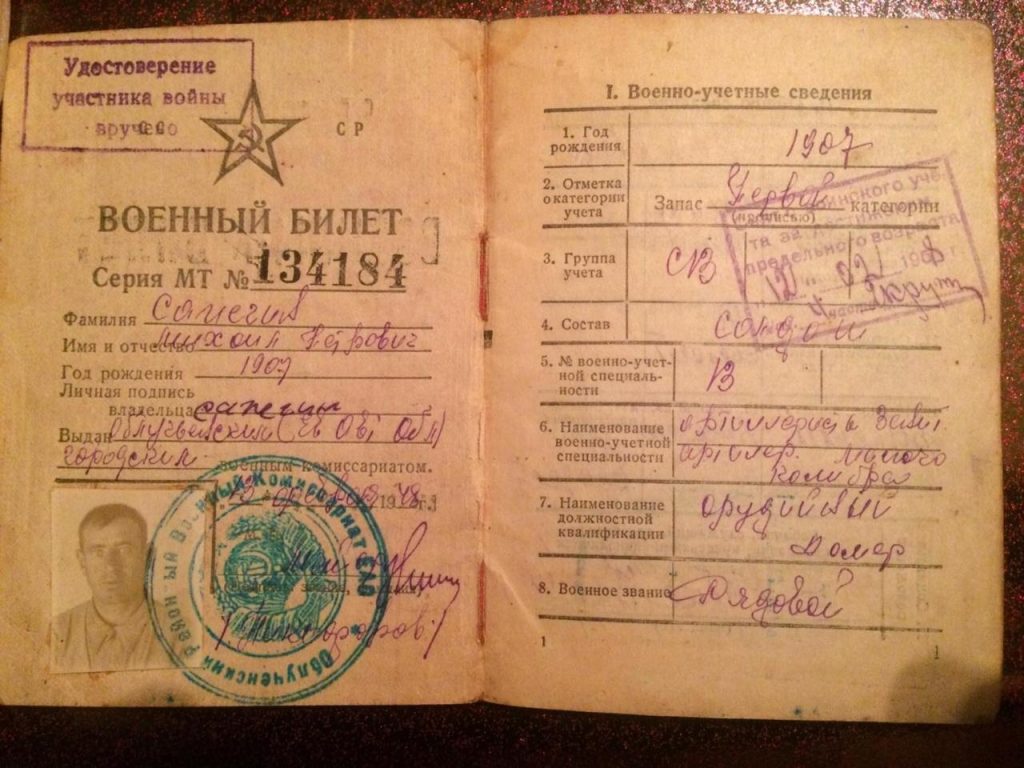 Удостоверение
участника войны
вручено
СР
ВОЕННЫЙ БИЛЕТ
Серия МТ № 134184
Фамилия Сапегин
Имя и отчество Михаил Петрович
Год рождения 1907
Личная подпись
владельца Сапегин
Выдан Облученским (ЕАО)
городским
военным комиссариатом.
1948 г.
Облученский Районный Военный Комиссариат ЕАО
I. Военно-учетные сведения
1. Год
рождения 1907
2. Отметка
о категории
учета
Запас Первой категории
(прописью)
3. Группа
учета СВ
4. Состав солдат
5. № военно-учет-
ной специаль-
ности 13
6. Наименование
военно-учетной
специальности
артиллерист Зенит.
артилер. малого
калибра
7. Наименование
должностной
квалификации
орудийный
номер
8. Военное звание Рядовой
воинского уче-
та за достижением
предельного возраста
12 02
1
1